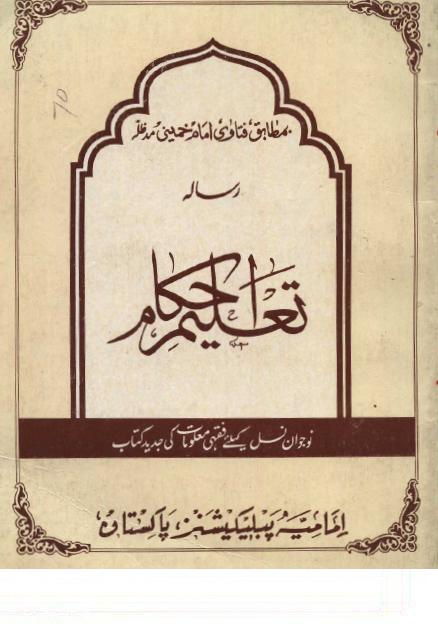 بمطابق فتاویٰ امام خمینی مدظلہ
رسالہ
تعلیم احکام
نوجوان نسل کیلئے فقہی معلومات کی جدید کتاب
امامیہ پبلیکیشنز پاکستان
70